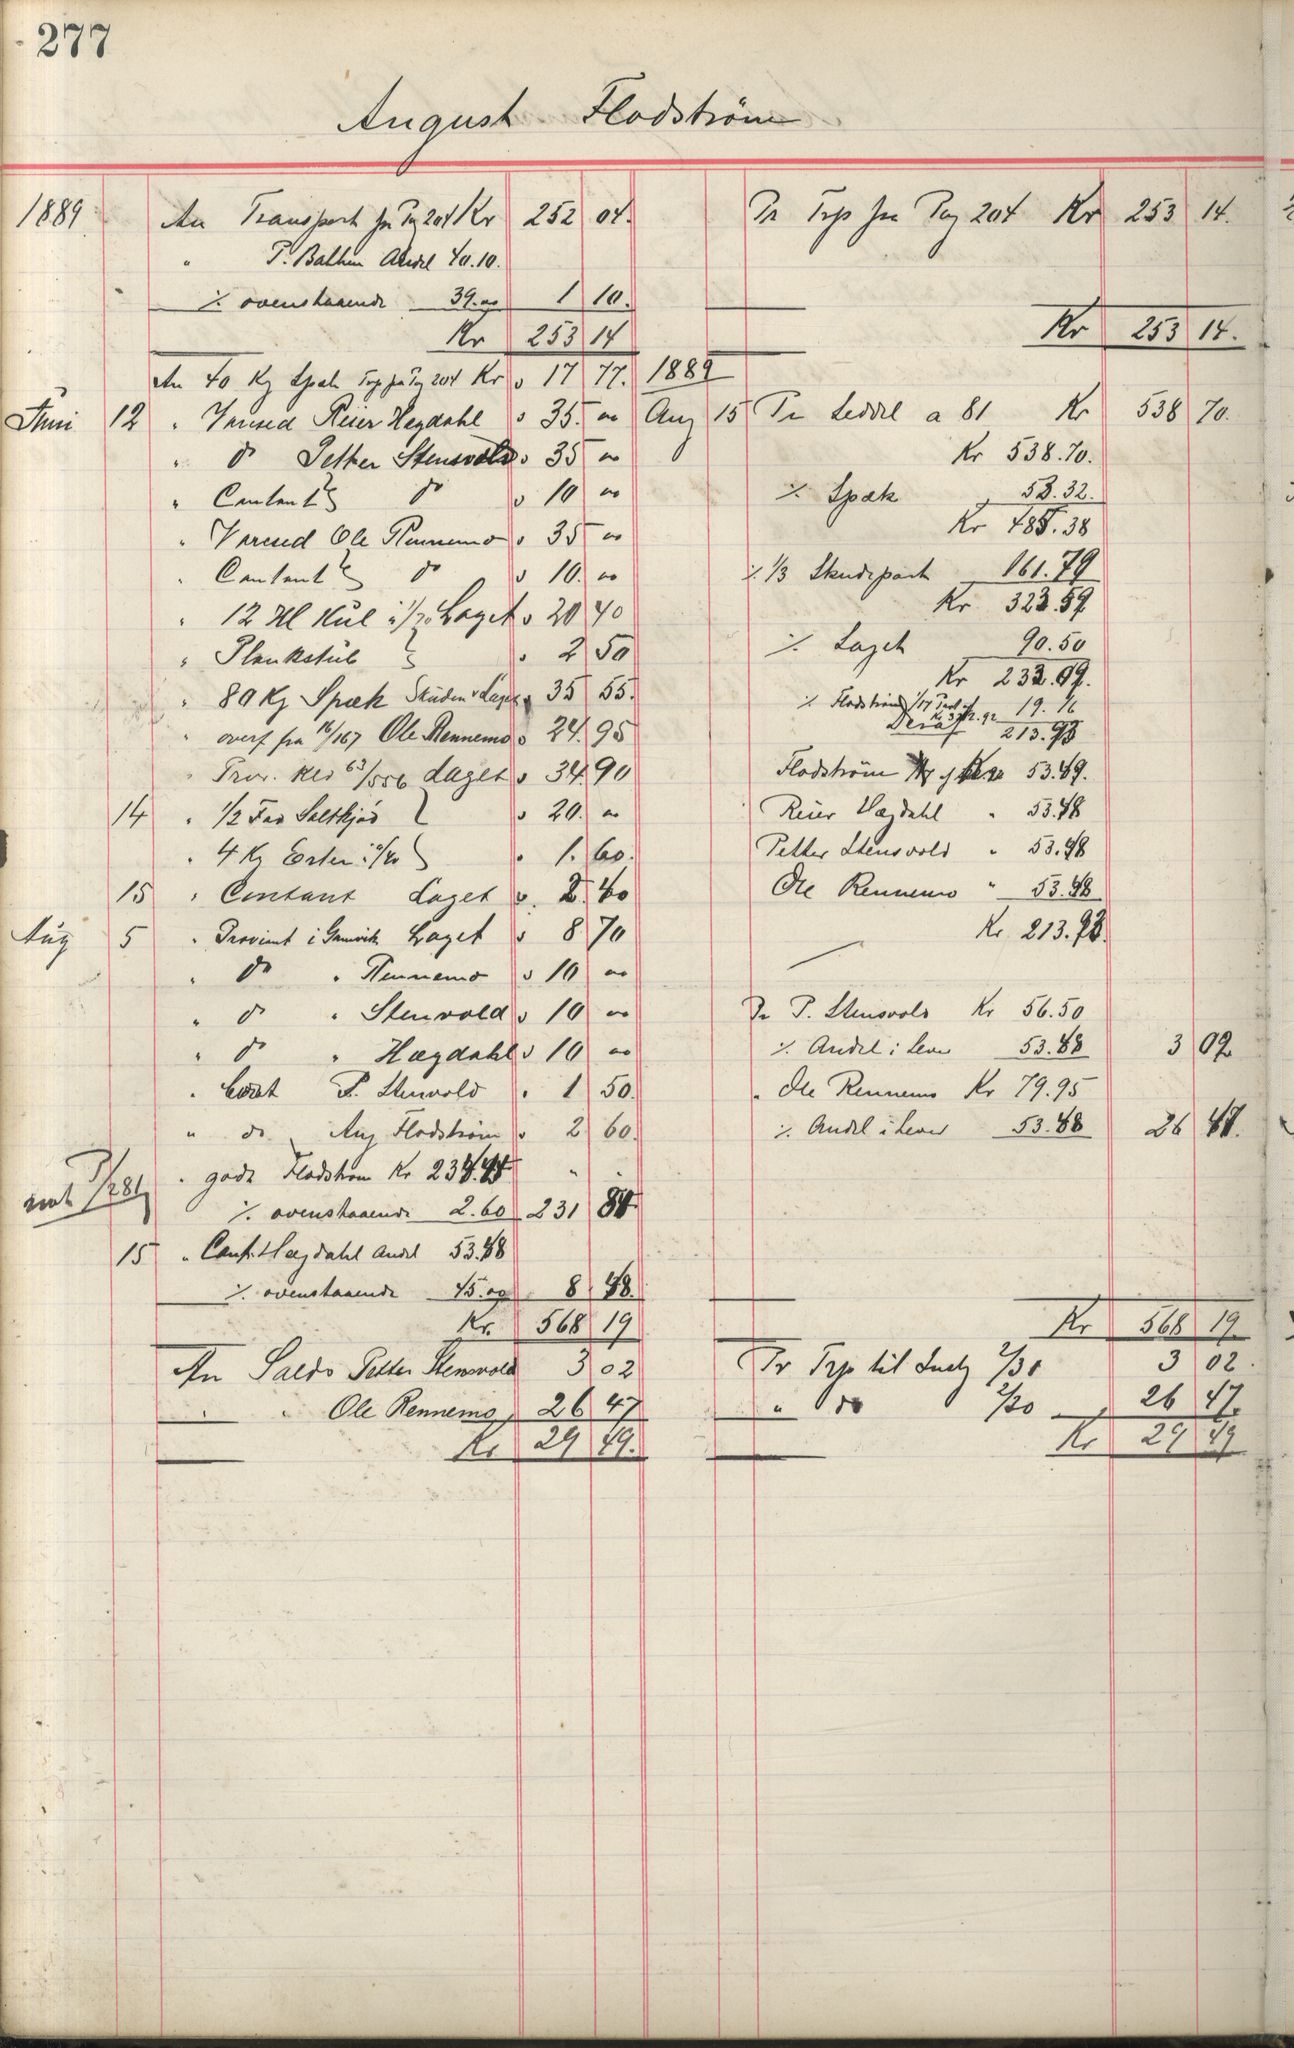 277
August Flodström
1889 An Transport fra Pag 204 Kr 252 04.
" P. Balken Andel 40.10.
% ovenstaaende 39.00 1 10.
Kr 253 14
An 40 Kg Spæk Trp fra Pag 204 Kr 17 77.
Juni 12 " Varesed Reier Hegdahl " 35. 00
" do Petter Stensvold " 35 00
" Contant do " 10 00
" Varesed Ole Rennemo " 35 00
" Contant do " 10. 00
" 12 Hl Kul i 1/70 Laget " 20 40
" Plankstub " 2 50
" 80 Kg Spæk Skuden & Laget " 35 55.
" overf fra 16/167 Ole Rennemo " 24. 95
" Prov. Red 63/556 Laget " 34. 90
14 " 1/2 Fad Saltkjød " 20. 00
" 4 Kg Erter " 1. 60.
15 " Contant Laget " 2. 40
Aug 5 " Proviant i Gamvik Laget " 8 70
" do " Rennemo " 10 00
" do " Stenvold " 10 00
" do " Hægdahl " 10 00
" Cont P. Stenvold " 1 50.
" do Aug Flodström " 2 60.
" godt Flodström Kr
% ovenstaaende 2.60 231 84
15 " Cont. Hægdahl Andel 53.48
% ovenstaaende 45.00 8 48.
Kr. 568 19
An Saldo Petter Stensvold 3 02
" " Ole Rennemo 26 47
Kr 29 49.
Pr Trp fra Pag 204 Kr 253 14.
Kr 253 14.
1889
Aug 15 Pr Seddel a 81 Kr 538 70.
Kr 538.70.
% Spæk 53.32.
Kr 485.38
% 1/3 Skudepart 161.79
Kr 323.59
% Laget 90.50
Kr 233.09.
% Flodström 1/17 19.16
Deraf 213.93
Flodström 53.49.
Reier Hægdahl " 53.48
Petter Stensvold " 53.48
Ole Rennemo " 53.48
Kr 213.93.
Pr P. Stensvold Kr 56.50
% Andel i Lever 53.48 3 02
" Ole Rennemo Kr 79.95
% Andel i Lever 53.48 26 47.
Kr 568 19.
Pr Trp til 2/30 3 02.
" do 2/20 26 47.
Kr 29 49